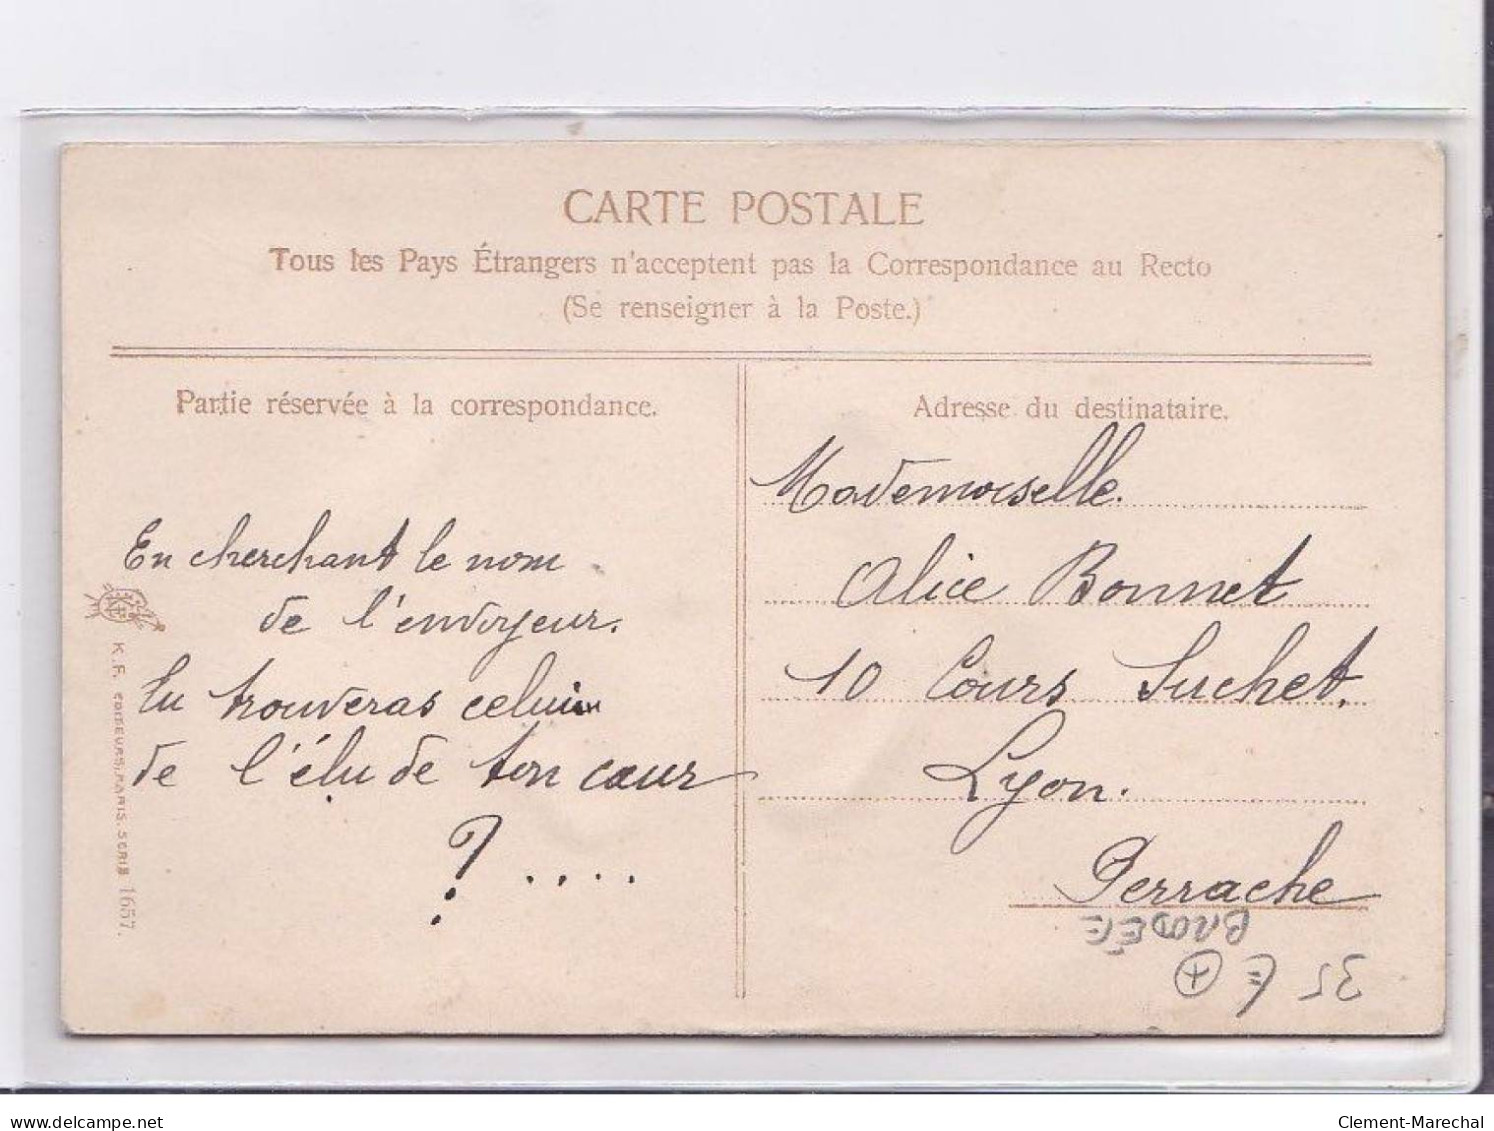 CARTE POSTALE
Tous les Pays Étrangers n'acceptent pas la Correspondance au Recto
(Se renseigner à la Poste.)
Partie réservée à la correspondance.
En cherchant le nom
de l'envoyeur.
Tu trouveras celui
de l'élu de ton cœur
?....
K.F. EDITEURS, PARIS. SÉRIE 1657.
Adresse du destinataire.
Mademoiselle.
Alice Bonnet
10 Cours Suchet.
Lyon.
Perrache
BRODÉE
35 E +
delcampe.net
Clement-Marechal